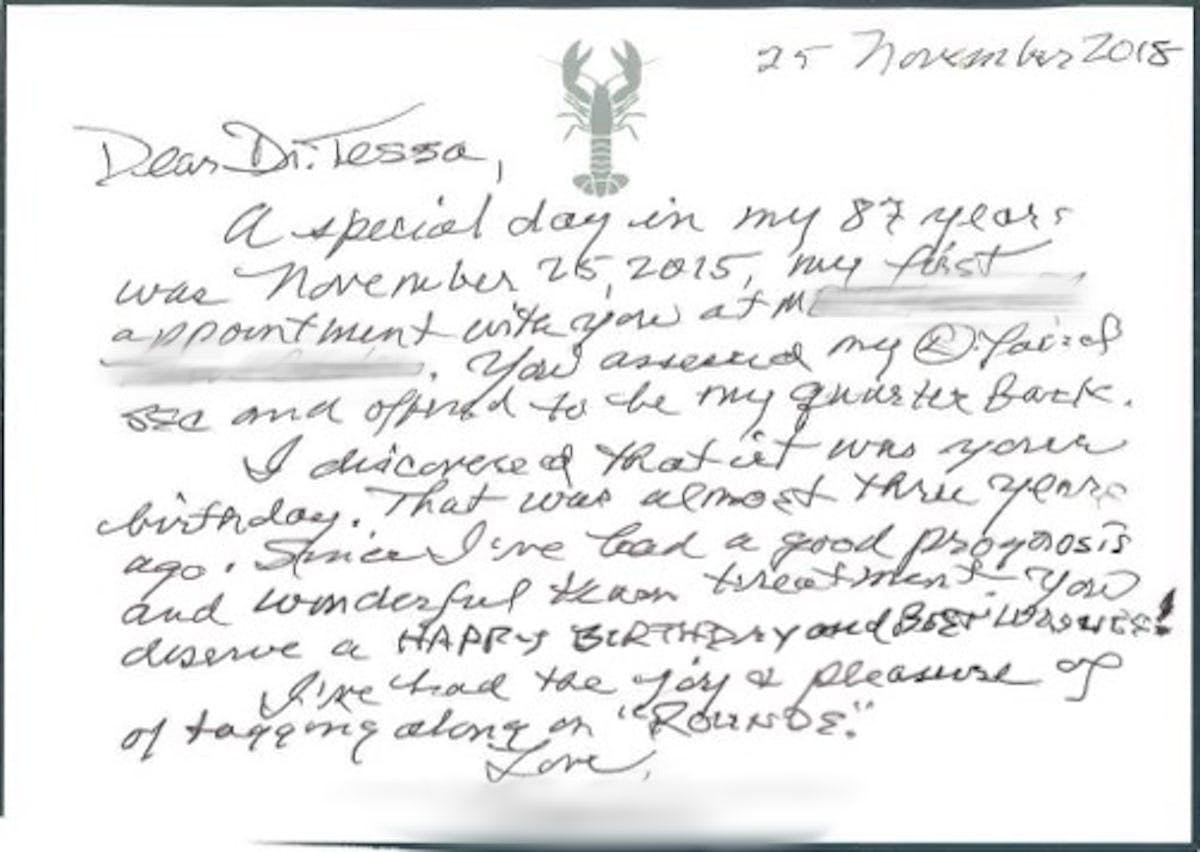 25 November 2018
Dear Dr. Tessa,
A special day in my 87 years
was November 25, 2015, my first
appointment with you at M
. You assessed my Ⓡ
SCC and offered to be my quarterback.
I discovered that it was your
birthday. That was almost three years
ago. Since I've had a good prognosis
and wonderful team treatment you
deserve a HAPPY BIRTHDAY and BEST WISHES!
I've had the joy & pleasure of
of tagging along on "ROUNDS."
Love,